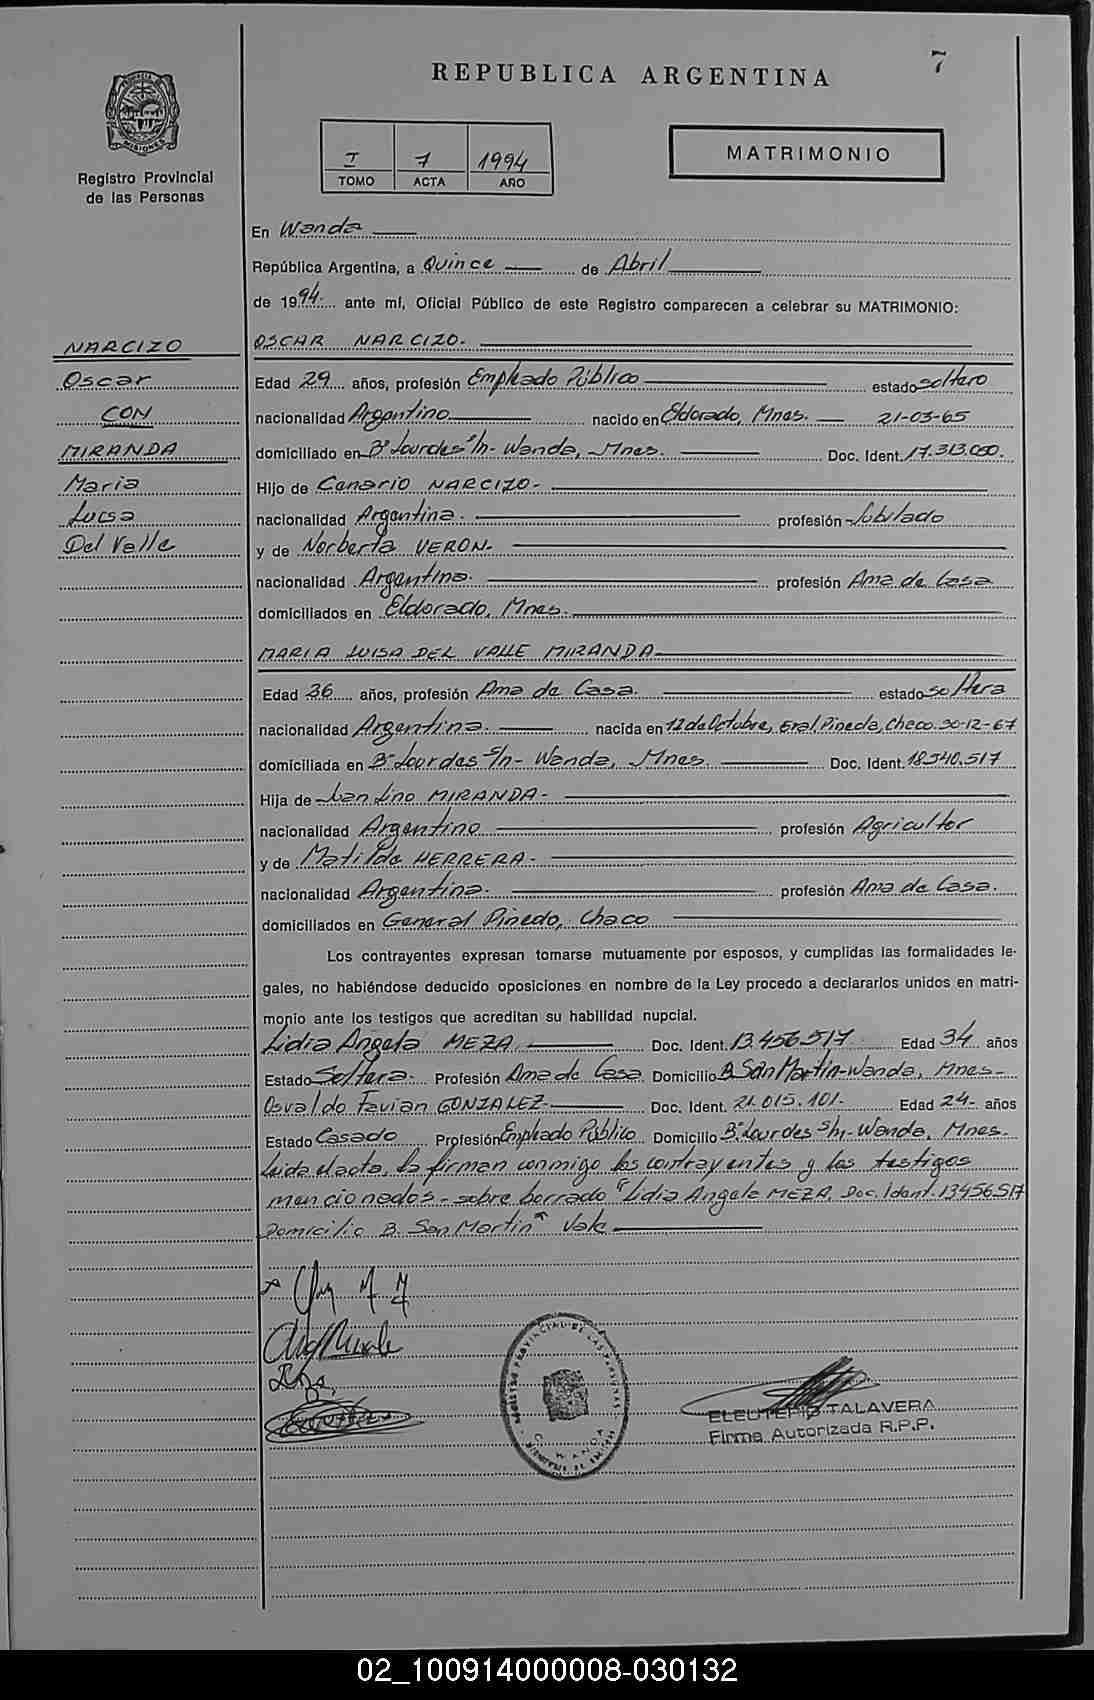 7
REPUBLICA ARGENTINA
MISIONES
Registro Provincial
de las Personas
I 7 1994
TOMO ACTA AÑO
MATRIMONIO
En Wanda
República Argentina, a Quince de Abril
de 1994 ante mí, Oficial Público de este Registro comparecen a celebrar su MATRIMONIO:
NARCIZO
Oscar
CON
MIRANDA
Maria
Luisa
Del Valle
OSCAR NARCIZO.
Edad 29 años, profesión Empleado Público estado soltero
nacionalidad Argentino nacido en Eldorado, Mnes. 21-03-65
domiciliado en B° Lourdes s/n- Wanda, Mnes. Doc. Ident. 17.313.050.
Hijo de Canario NARCIZO-
nacionalidad Argentina. profesión Jubilado
y de Norberta VERON-
nacionalidad Argentina. profesión Ama de Casa
domiciliados en Eldorado, Mnes.
MARIA LUISA DEL VALLE MIRANDA
Edad 26 años, profesión Ama de Casa. estado soltera
nacionalidad Argentina. nacida en 12 de Octubre, Gral. Pinedo, Chaco. 30-12-67
domiciliada en B° Lourdes s/n- Wanda, Mnes Doc. Ident. 18.540.517
Hija de Lino MIRANDA-
nacionalidad Argentino profesión Agricultor
y de Matilde HERRERA-
nacionalidad Argentina. profesión Ama de Casa.
domiciliados en General Pinedo, Chaco
Los contrayentes expresan tomarse mutuamente por esposos, y cumplidas las formalidades le-
gales, no habiéndose deducido oposiciones en nombre de la Ley procedo a declararlos unidos en matri-
monio ante los testigos que acreditan su habilidad nupcial.
Lidia Angela MEZA Doc. Ident. 13.456.517 Edad 34 años
Estado Soltera. Profesión Ama de Casa Domicilio B. San Martin-Wanda, Mnes-
Osvaldo Favian GONZALEZ- Doc. Ident. 21.015.101. Edad 24- años
Estado Casado Profesión Empleado Público Domicilio B° Lourdes s/n- Wanda, Mnes.
Leida el acta, la firman conmigo los contrayentes y los testigos
mencionados- sobre borrado "Lidia Angela MEZA Doc. Ident. 13456517
Domicilio B. San Martin" Vale
REGISTRO PROVINCIAL DE LAS PERSONAS
WANDA
ELEUTERIO TALAVERA
Firma Autorizada R.P.P.
02_100914000008-030132